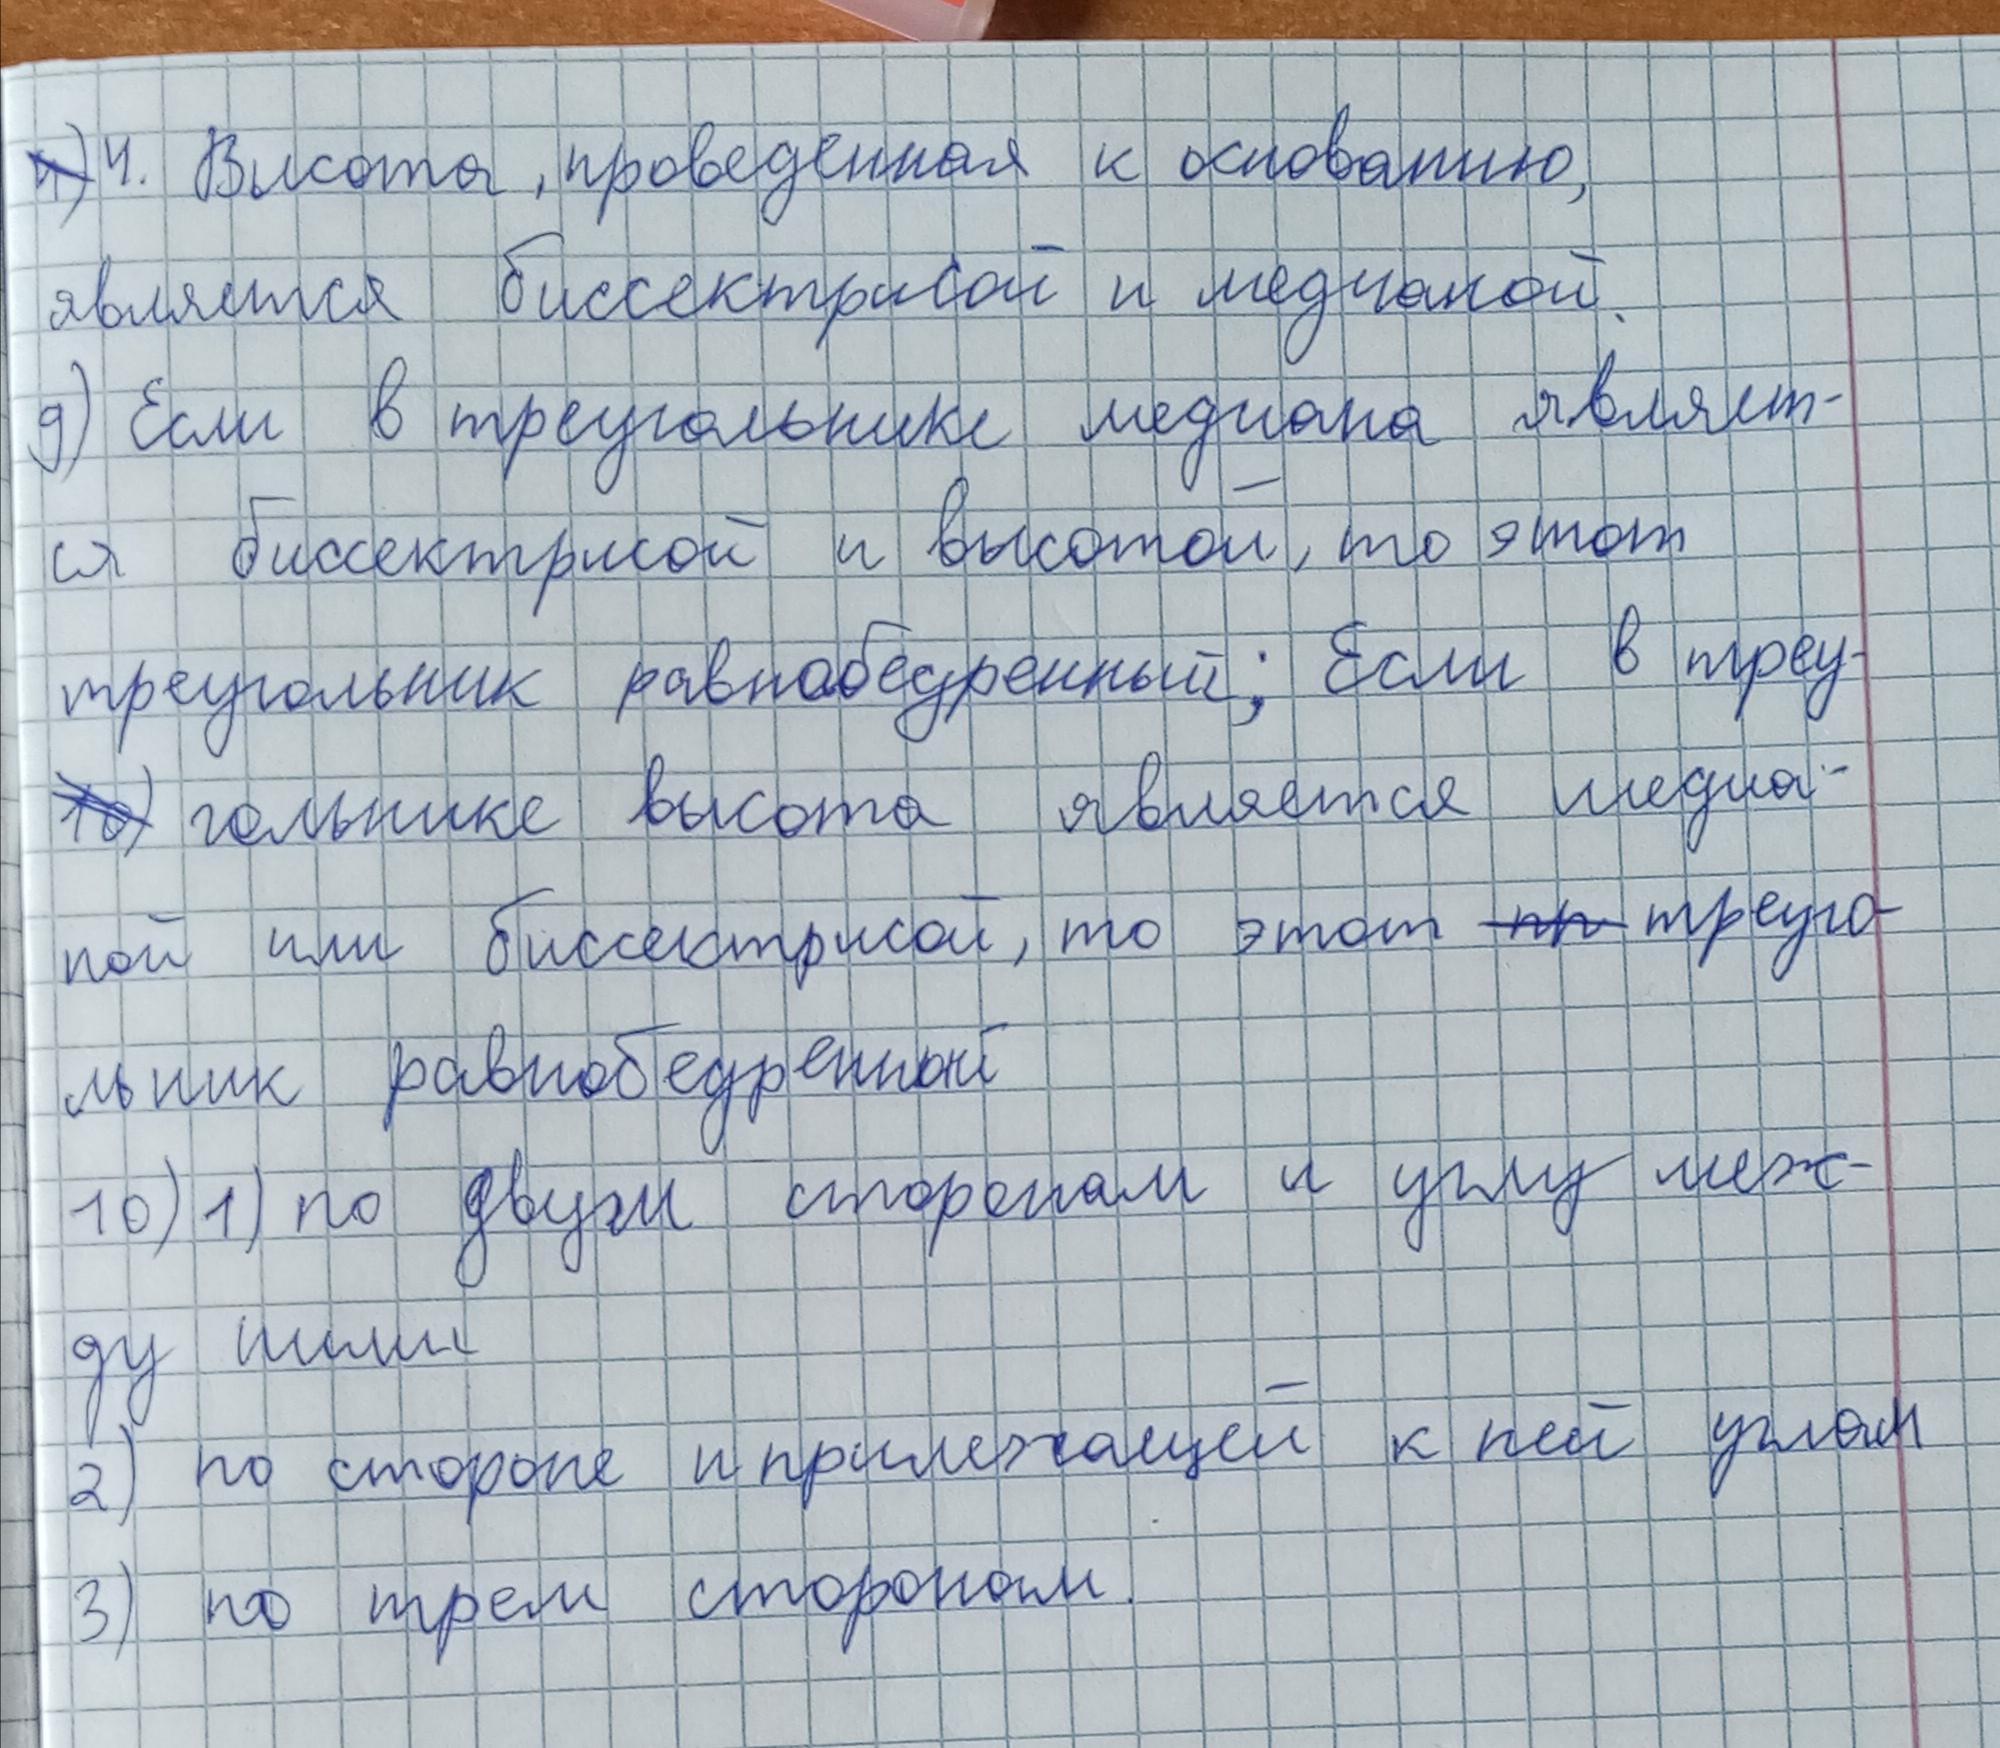 4. Высота, проведенная к основанию,
является биссектрисой и медианой.
9) Если в треугольнике медиана являет-
ся биссектрисой и высотой, то этот
треугольник равнобедренный; Если в треу-
гольнике высота является медиа-
ной или биссектрисой, то этот треуго-
льник равнобедренный
10) 1) по двум сторонам и углу меж-
ду ними
2) по стороне и прилежащей к ней углам
3) по трем сторонам.